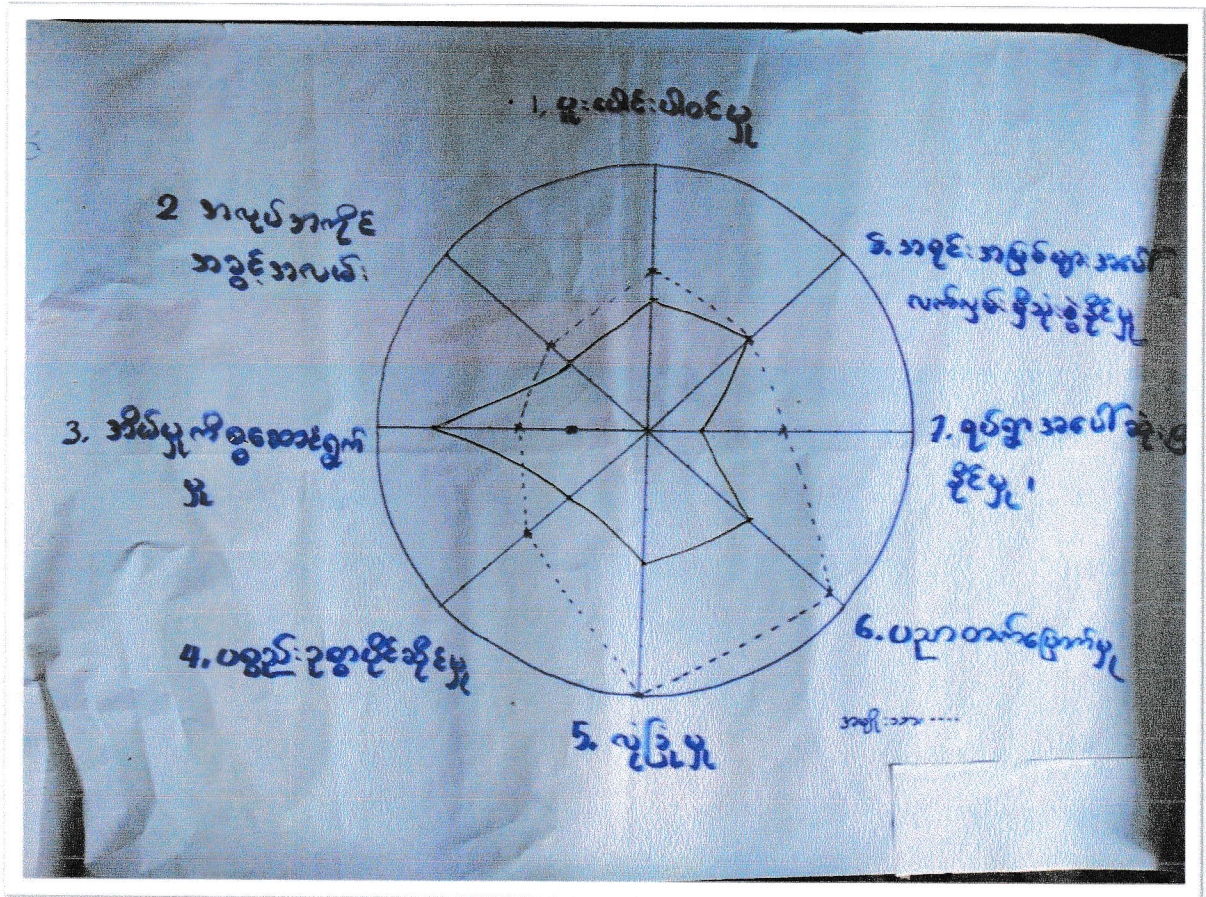 1. ပူးပေါင်းပါဝင်မှု
2 အလုပ်အကိုင်
အခွင့်အလမ်း
3. အိမ်မှုကိစ္စဆောင်ရွက်
မှု
4. ပစ္စည်းဥစ္စာပိုင်ဆိုင်မှု
5. လုံခြုံမှု
6. ပညာတတ်မြောက်မှု
7. ရပ်ရွာအပေါ်
နိုင်မှု။
8. အရင်းအမြစ်များအပေါ်
လက်လှမ်းမှီသုံးစွဲနိုင်မှု
အမျိုးသား ----